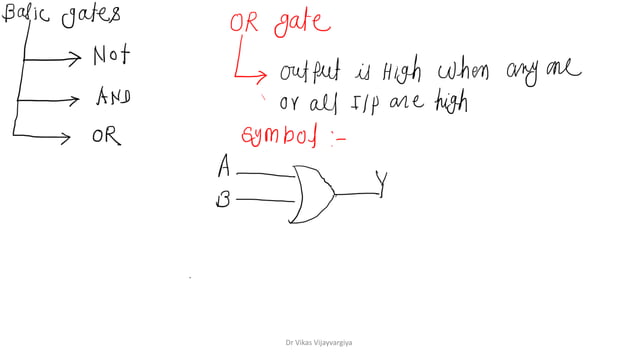 Basic gates
Not
AND
OR
OR gate
output is High when any one
or all I/p are high
Symbol :-
A
B
Y
Dr Vikas Vijayvargiya